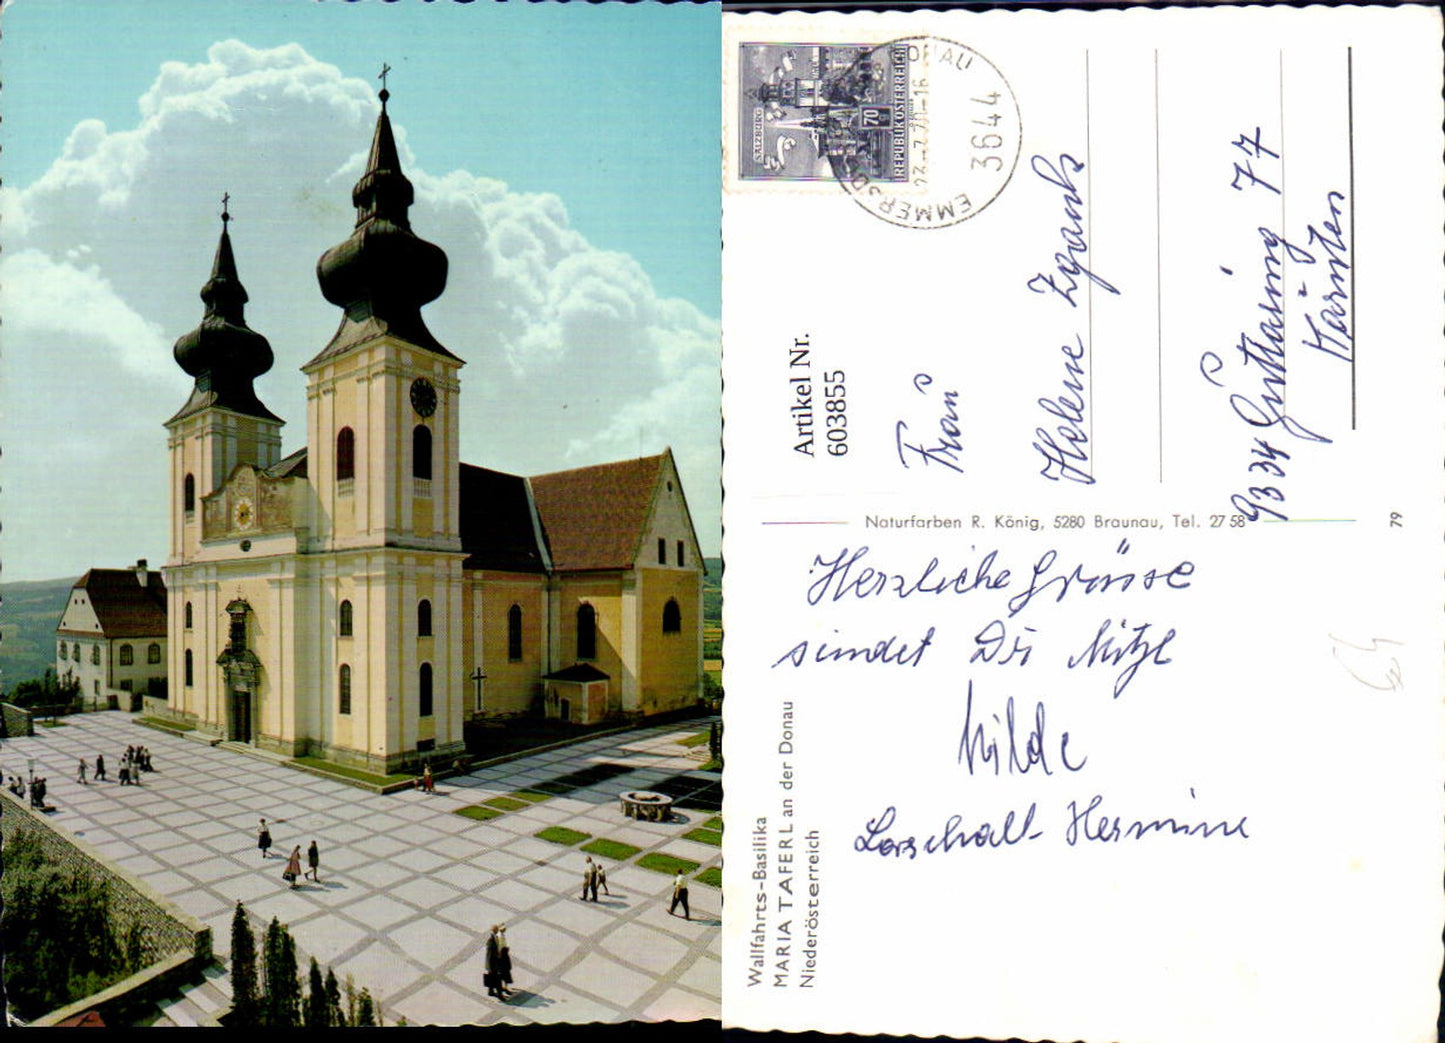 SALZBURG
70
REPUBLIK ÖSTERREICH
3644 EMMERSDORF
DONAU
23.-7.70-16
Artikel Nr.
603855
Frau
Helene
9334 Guttaring 77
Kärnten
Naturfarben R. König, 5280 Braunau, Tel. 27 58
79
Herzliche Grüsse
sendet Dir
Hilde
Hermine
Wallfahrts-Basilika
MARIA TAFERL an der Donau
Niederösterreich